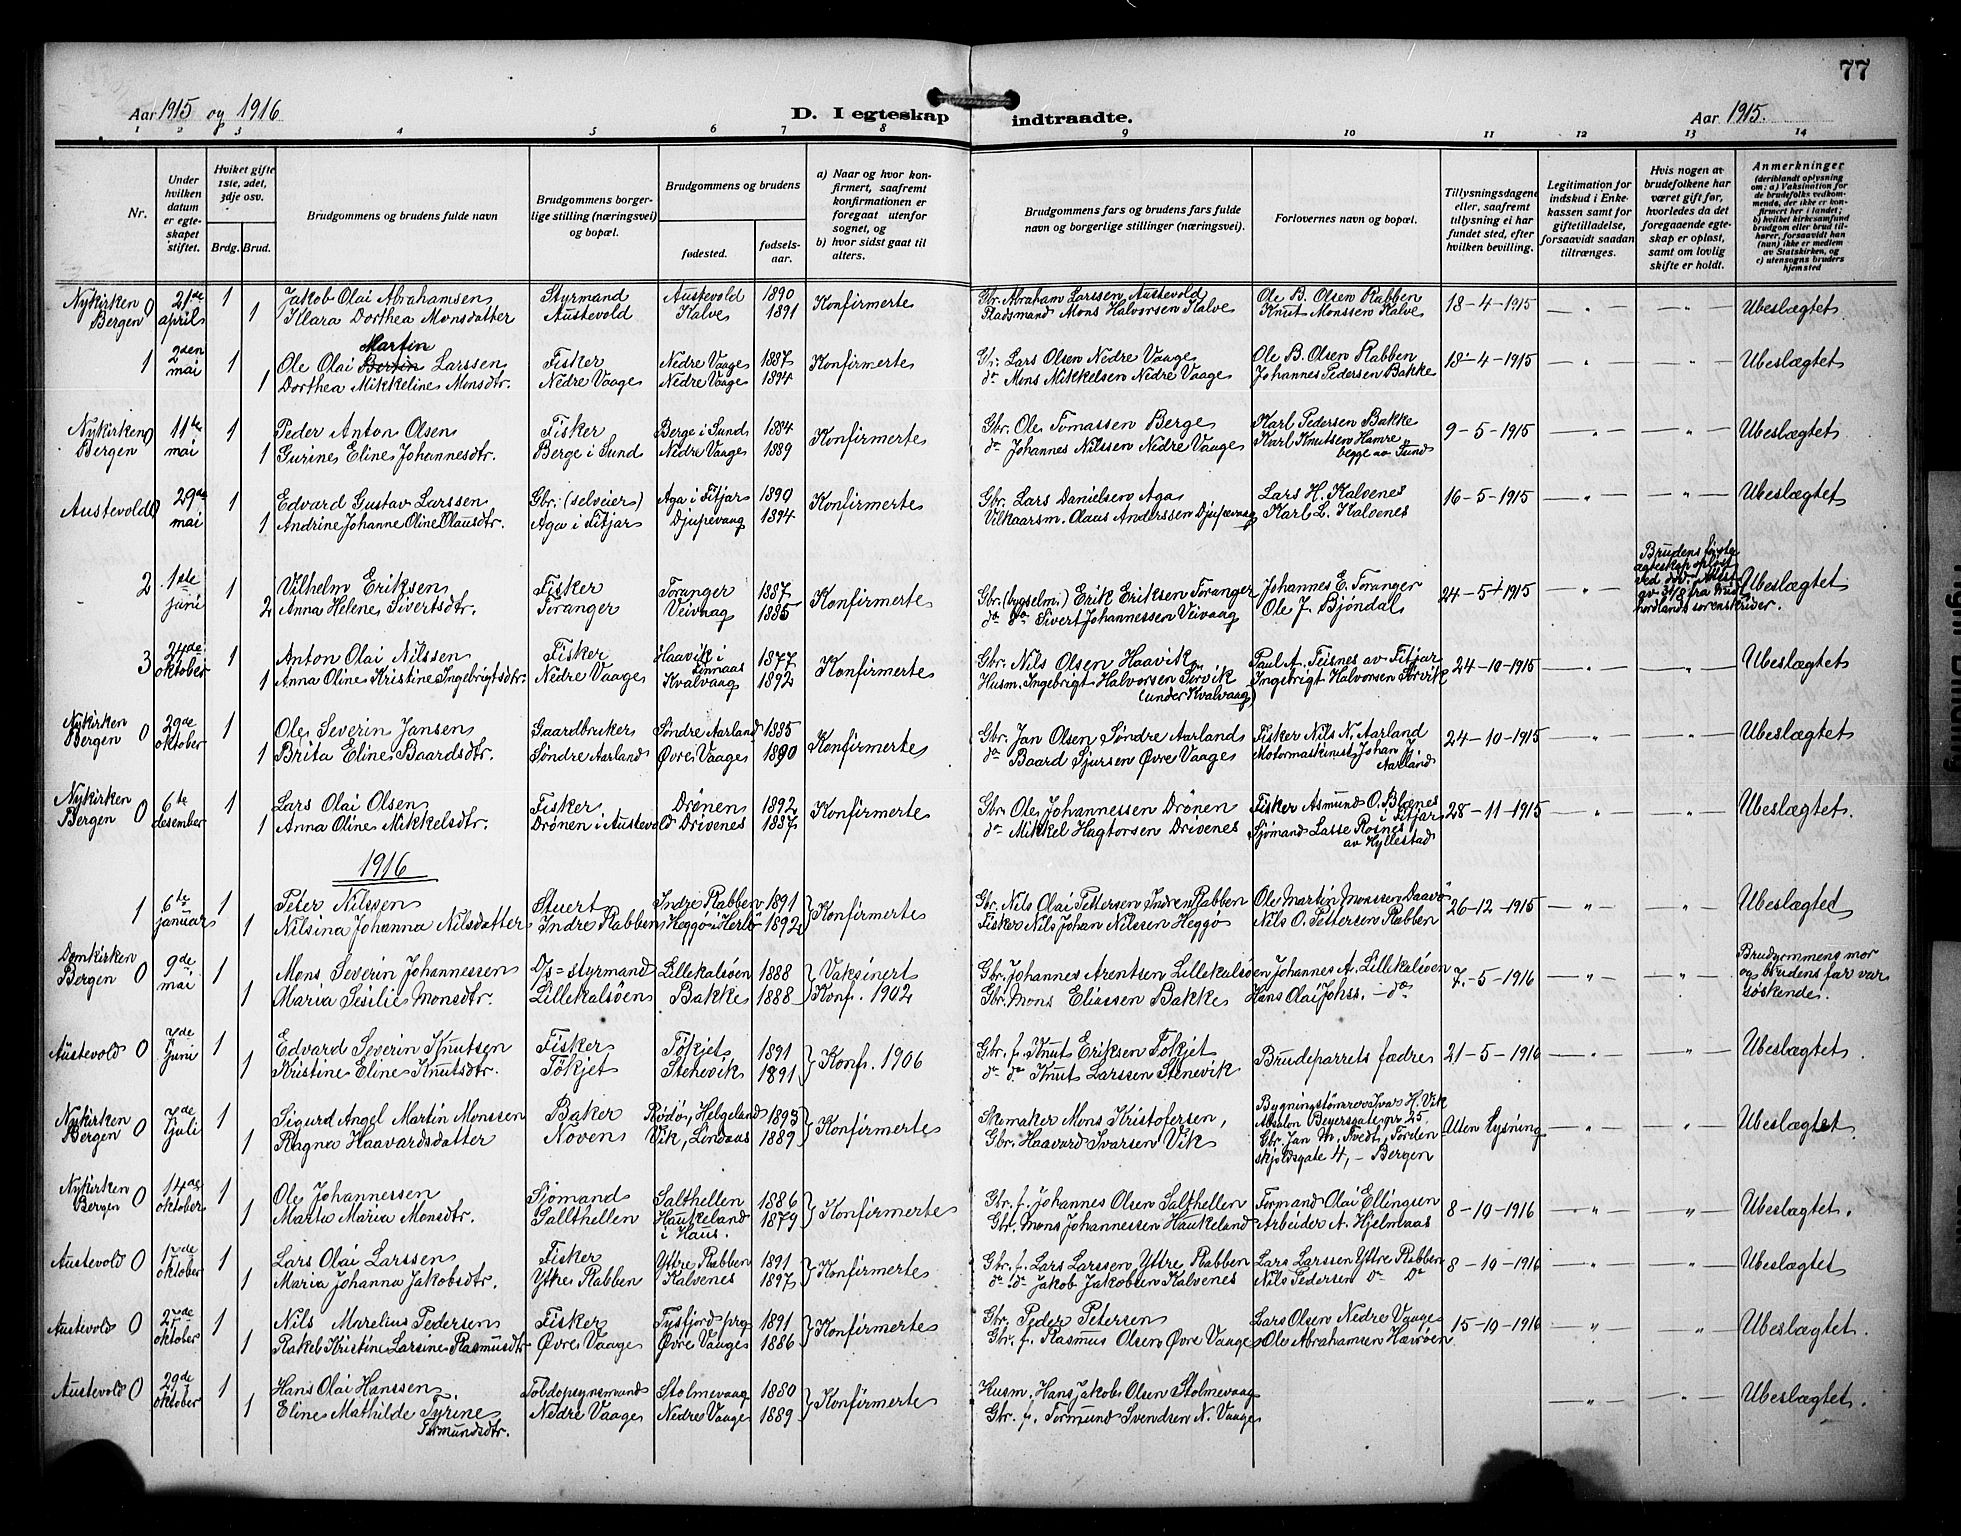 77
Aar 1915 og 1916
D. I egteskap indtraadte.
Aar 1915.
1 2 3 4 5 6 7 8 9 10 11 12 13 14
Nr.
Under hvilken datum er egteskapet stiftet.
Hvilket gifte 1ste, 2det, 3dje osv.
Brdg. Brud.
Brudgommens og brudens fulde navn
Brudgommens borgerlige stilling (næringsvei) og bopæl.
Brudgommens og brudens
fødested.
fødselsaar.
a) Naar og hvor konfirmert, saafremt konfirmationen er foregaat utenfor sognet, og
b) hvor sidst gaat til alters.
Brudgommens fars og brudens fars fulde navn og borgerlige stillinger (næringsvei).
Forlovernes navn og bopæl.
Tillysningsdagene eller, saafremt tillysning ei har fundet sted, efter hvilken bevilling.
Legitimation for indskud i Enkekassen samt for giftetilladelse, forsaavidt saadan tiltrænges.
Hvis nogen av brudefolkene har været gift før, hvorledes da det foregaaende egteskap er opløst, samt om lovlig skifte er holdt.
Anmerkninger (deriblandt oplysning om: a) Vaksination for de brudefolks vedkommende, der ikke er konfirmert her i landet; b) hvilket kirkesamfund brudgom eller brud tilhører, forsaavidt han (hun) ikke er medlem av Statskirken, og c) utensogns bruders hjemsted
Nykirken Bergen 0 21de april 1 Jakob Olai Abrahamsen Styrmand Austevold 1890 Konfirmerte Gbr. Abraham Larssen Austevold Ole B. Olsen Rabben 18-4-1915 — " — — " — Ubeslægtet
1 Klara Dorthea Monsdatter Austevold Kalve 1891 Mons Halvorsen Kalve Knut Monssen Kalve
1 2den mai 1 Ole Olai Bertin Martin Larssen Fisker Nedre Vaage 1887 Konfirmerte Gbr. Lars Olsen Nedre Vaage Ole B. Olsen Rabben 18-4-1915 — " — — " — Ubeslægtet
1 Dorthea Mikkeline Monsdtr. Nedre Vaage Nedre Vaage 1894 do Mons Mikkelsen Nedre Vaage Johannes Pedersen Bakke
Nykirken Bergen 0 11te mai 1 Peder Anton Olsen Fisker Berge i Sund 1884 Konfirmerte Gbr. Ole Tomassen Berge Karl Pedersen Bakke 9-5-1915 — " — — " — Ubeslægtet
1 Gurine Eline Johannesdtr. Berge i Sund Nedre Vaage 1889 do Johannes Nilssen Nedre Vaage Karl Knutsen Hamre begge av Sund
Austevold 0 29de mai 1 Edvard Gustav Larssen Gbr. (selveier) Aga i Fitjar 1890 Konfirmerte Gbr. Lars Danielsen Aga Lars H. Kalvenes 16-5-1915 — " — — " — Ubeslægtet
1 Andrine Johanne Oline Olausdtr. Aga i Fitjar Djupevaag 1894 Vilkaarsm. Olaus Anderssen Djupevaag Karl L. Kalvenes
2 1ste juni 1 Vilhelm Eriksen Fisker Toranger 1887 Konfirmerte Gbr. (bygselm.) Erik Eriksen Toranger Johannes E. Toranger 24-5-1915 — " — Brudens første egteskap opløst ved død. fra Midhordland sorenskriver. Ubeslægtet
2 Anna Helene Sivertsdtr. Toranger Veivaag 1885 do do Sivert Johannessen Veivaag Ole J. Bjøndal
3 24de oktober 1 Anton Olai Nilssen Fisker Haavik i Finnaas 1877 Konfirmerte Gbr. Nils Olsen Haavik Paul A. Teisnes av Fitjar 24-10-1915 — " — — " — Ubeslægtet
1 Anna Oline Kristine Ingebrigtsdtr. Nedre Vaage Kvalvaag 1892 Husm. Ingebrigt Halvorsen Sørvik (under Kvalvaag) Ingebrigt Halvorsen Sørvik
Nykirken Bergen 0 29de oktober 1 Ole Severin Jansen Gaardbruker Søndre Aarland 1885 Konfirmerte Gbr. Jan Olsen Søndre Aarland Fisker Nils N. Aarland 24-10-1915 — " — — " — Ubeslægtet
1 Brita Eline Baardsdtr. Søndre Aarland Øvre Vaage 1890 do Baard Sjursen Øvre Vaage Motormaskinist Johan Aarland
Nykirken Bergen 0 6te desember 1 Lars Olai Olsen Fisker Drønen 1892 Konfirmerte Gbr. Ole Johannessen Drønen Fisker Asmund O. Blænes i Fitjar 28-11-1915 — " — — " — Ubeslægtet.
1 Anna Oline Mikkelsdtr. Drønen i Austevold Drivenes 1887 do Mikkel Hagtorsen Drivenes Sjømand Lasse Rosnes av Hyllestad
1916
1 6te januar 1 Peter Nilssen Stuert Indre Rabben 1891 Konfirmerte Gbr. Nils Olai Pettersen Indre Rabben Ole Martin Monssen Daavø 26-12-1915 — " — — " — Ubeslægted
1 Nilsina Johanna Nilsdatter Indre Rabben Heggø i Herlø 1892 Fisker Nils Johan Nilssen Heggø Nils O. Pettersen Rabben
Domkirken Bergen 0 9de mai 1 Mons Severin Johannessen D/s=styrmand Lillekalsøen 1888 Vaksinert Gbr. Johannes Arentsen Lillekalsøen Johannes A. Lillekalsøen 7.-5-1916 — " — — " — Brudgommens mor og brudens far var søskende.
1 Maria Sesilie Monsdtr. Lillekalsøen Bakke 1888 Konf. 1902 Gbr. Mons Eliassen Bakke Hans Olai Johss. — do
Austevold 0 7de juni 1 Edvard Severin Knutsen Fisker Tøkjet 1891 Konf. 1906 Gbr. f. Knut Eriksen Tøkjet Brudeparrets fædre 21-5-1916 — " — — " — Ubeslægtet.
1 Kristine Eline Knutsdtr. Tøkjet Stenevik 1891 do do Knut Larssen Stenevik
Nykirken Bergen 0 7de juli 1 Sigurd Angel Martin Monssen Baker Rødø, Helgeland 1893 Konfirmerte Skomaker Mons Kristofersen, Bygningstømrer Ivar H. Vik Absalon Beyersgate nr 25. Uten lysning — " — — " — Ubeslægtet.
1 Ragna Haavardsdatter Noven Vik, Lindaas 1889 Gbr. Haavard Ivarsen Vik Gbr. Jan M. Tvedt, Tordenskjoldsgate 4, — Bergen
Nykirken Bergen 0 14de oktober 1 Ole Johannessen Sjømand Salthellen 1886 Konfirmerte Gbr. f. Johannes Olsen Salthellen Formand Olai Ellingsen 8-10-1916 — " — — " — Ubeslægtet.
1 Marta Maria Monsdtr. Sallthellen Haukeland i Haus. 1879 Gbr. Mons Johannessen Haukeland Arbeider A. Hjelmaas
Austevold 0 17de oktober 1 Lars Olai Larssen Fisker Yttre Rabben 1891 Konfirmerte Gbr. f. Lars Larssen Yttre Rabben Lars Larssen Yttre Rabben 8-10-1916 — " — — " — Ubeslægtet
1 Maria Johanna Jakobsdtr. Yttre Rabben Kalvenes 1897 do do Jakob Jakobsen Kalvenes Nils Pedersen do do
Austevold 0 27de oktober 1 Nils Marelius Pedersen Fisker Tysfjord prg. 1891 Konfirmerte Gbr. Peder Petersen Lars Olsen Nedre Vaage 15-10-1916 " — " — Ubeslægtet.
1 Rakel Kristine Larsine Rasmusdtr. Øvre Vaage Øvre Vaage 1886 Gbr. f. Rasmus Olsen Øvre Vaage Ole Abrahamsen Hærøen
Austevold 0 29de oktober 1 Hans Olai Hanssen Toldopsynsmand Stolmevaag 1880 Konfirmerte Husm. Hans Jakob Olsen Stolmevaag — " — — " — Ubeslægtet.
1 Eline Mathilde Tyrine Tormundsdtr. Nedre Vaage Nedre Vaage 1889 Gbr. f. Tormund Svendsen N. Vaage